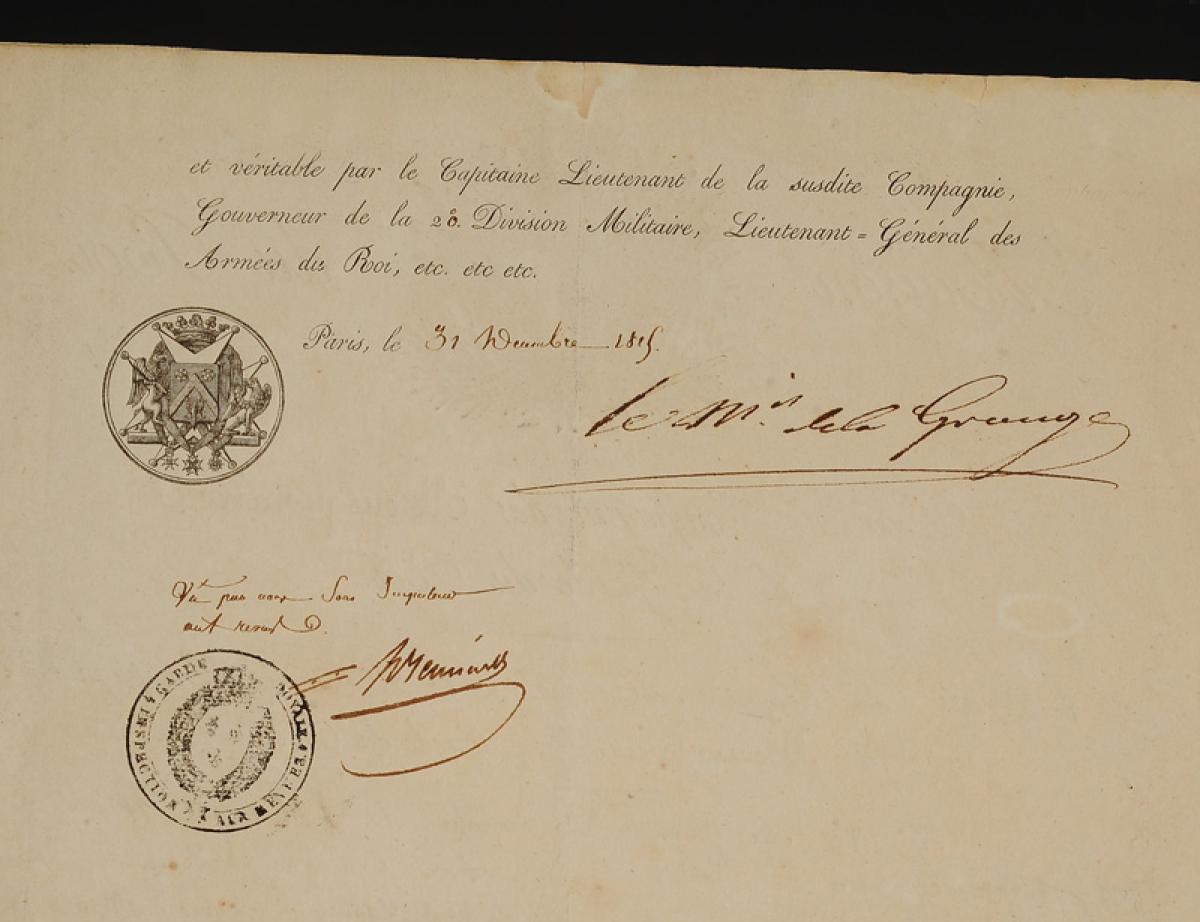 et véritable par le Capitaine Lieutenant de la susdite Compagnie,
Gouverneur de la 2e. Division Militaire, Lieutenant=Général des
Armées du Roi, etc. etc etc.
Paris, le 31 Décembre 1815.
le Mis. de la Grange
Vu par nous Sous Inspecteur
aux revues
GARDE ROYALE
INSPECTION AUX REVUES